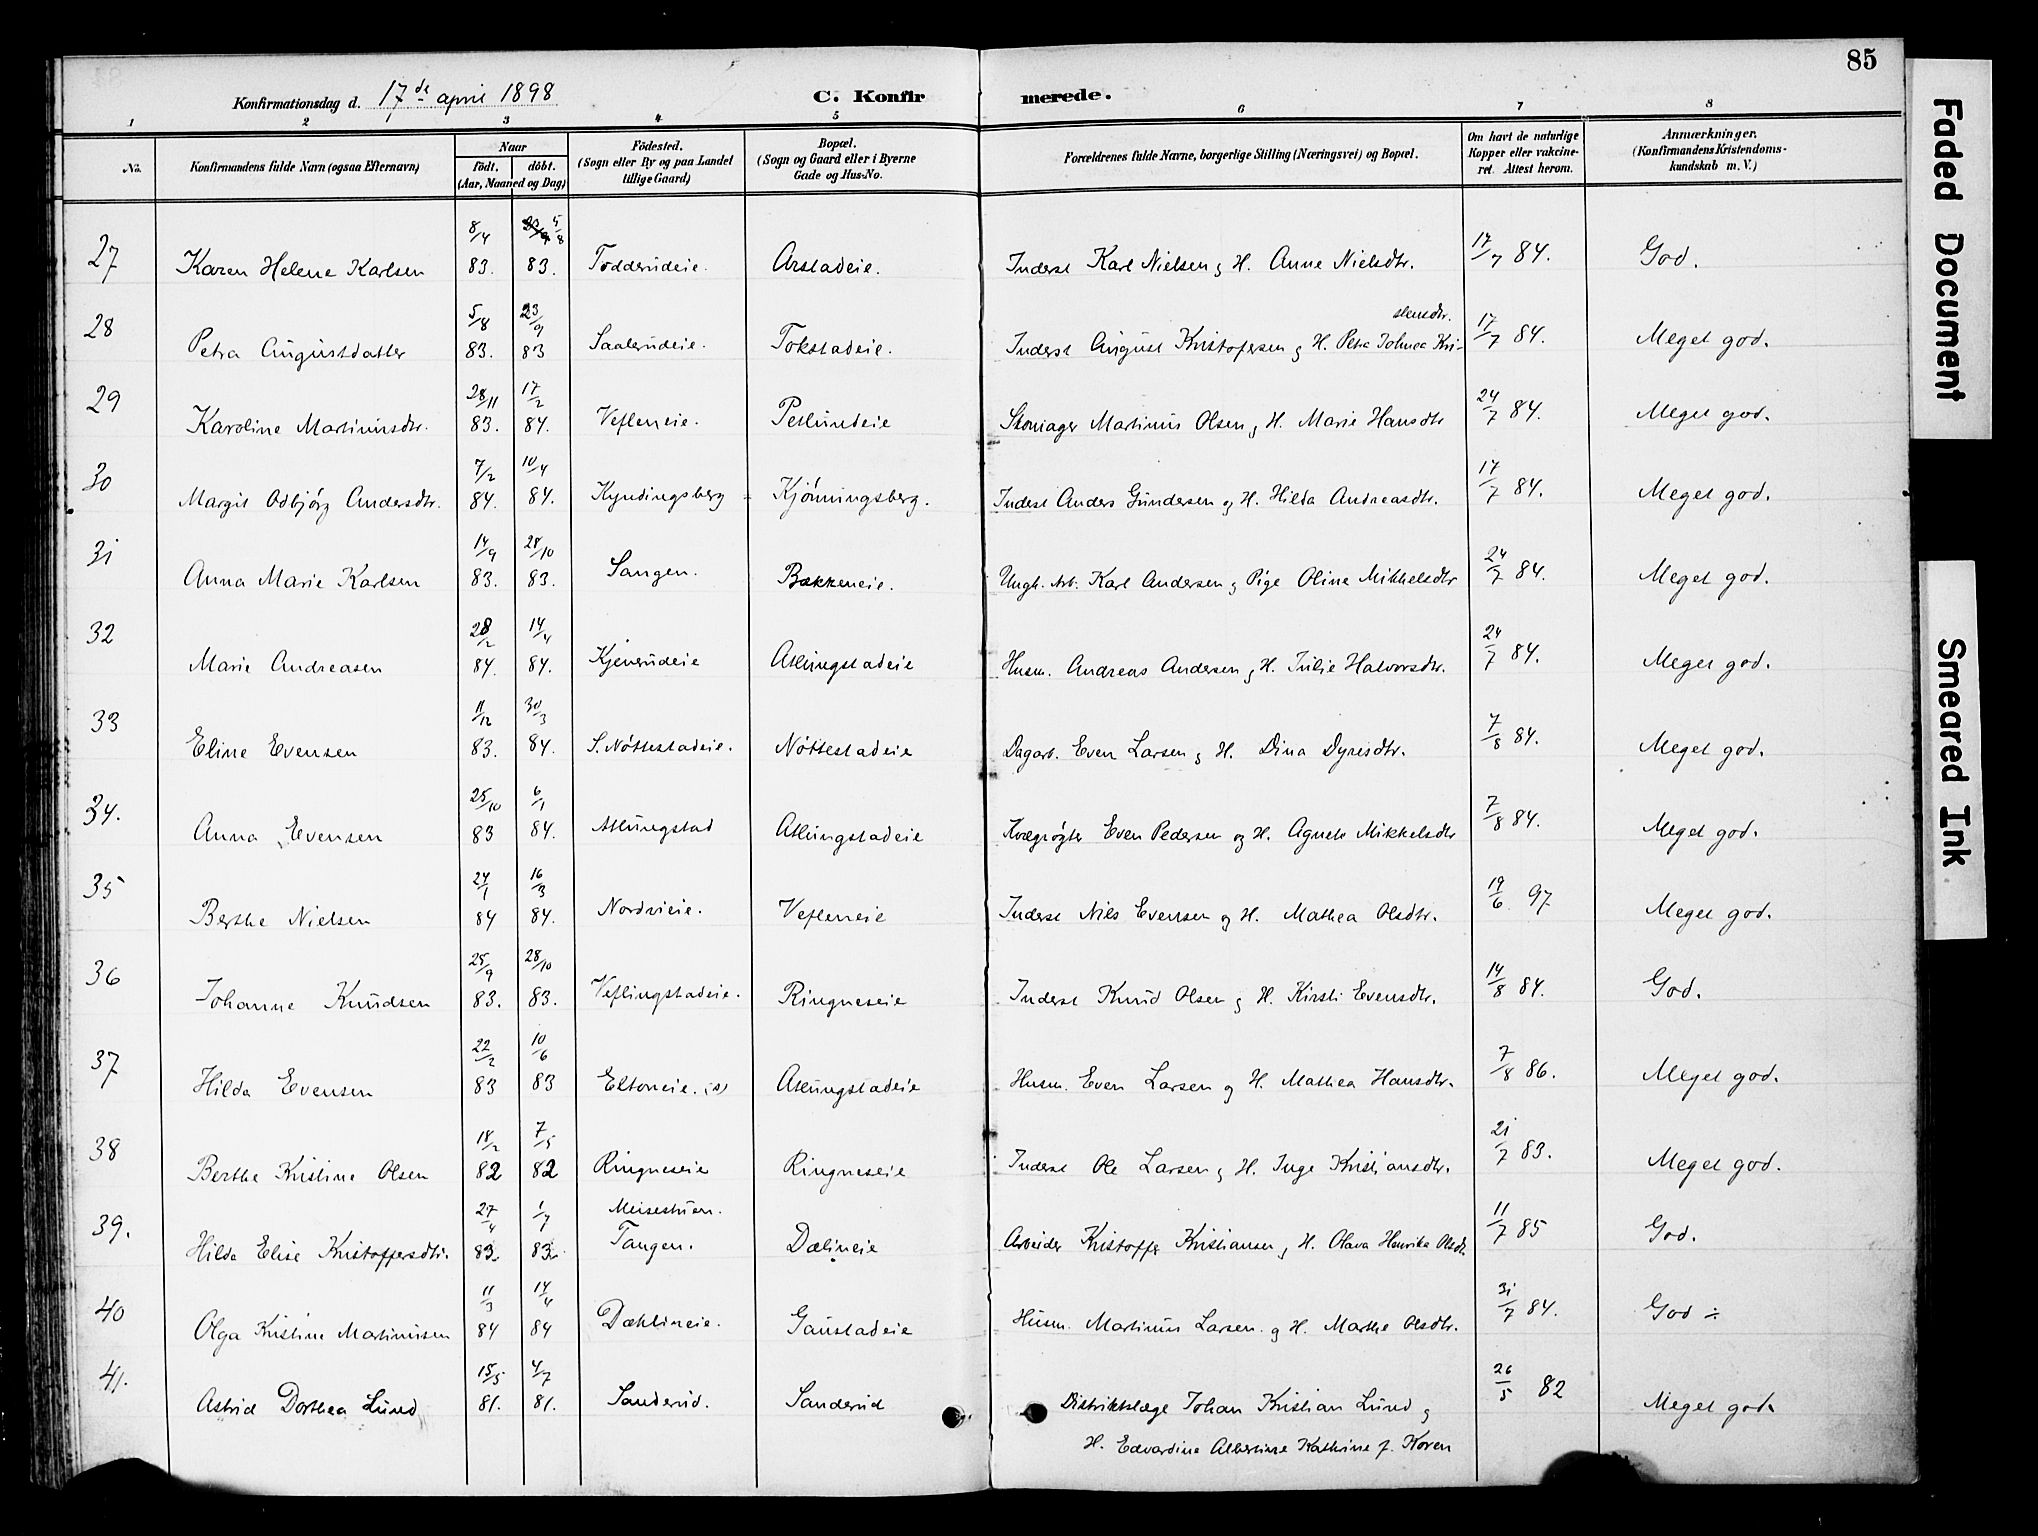 85
Konfirmationsdag d. 17de april 1898
C. Konfirmerede.
1 2 3 4 5 6 7 8
No.
Konfirmandens fulde Navn (ogsaa Efternavn)
Naar
Födt. döbt.
(Aar, Maaned og Dag)
Födested.
(Sogn eller By og paa Landet
tillige Gaard)
Bopæl.
(Sogn og Gaard eller i Byerne
Gade og Hus-No.
Forældrenes fulde Navne, borgerlige Stilling (Næringsvei) og Bopæl.
Om havt de naturlige
Kopper eller vakcine-
ret. Attest herom.
Anmærkninger.
(Konfirmandens Kristendoms-
kundskab m. V.)
27 Karen Helene Karlsen 8/4 83. 5/8 83. Todderudeie. Arstadeie. Inderst Karl Nielsen og H. Anne Nielsdtr. 17/7 84. God.
28 Petra Augustdatter 5/8 83. 23/9 83 Saalerudeie. Tokstadeie. Inderst August Kristofersen og H. Petra Johnea Kri-stensdtr. 17/7 84. Meget god.
29 Karoline Martinusdtr. 28/11 83. 17/2 84. Vefleneie. Petlundeie Skomager Martinus Olsen og H. Marie Hansdtr 24/7 84. Meget god.
30 Margit Odbjörg Andersdtr. 7/2 84. 10/4 84. Kyndingsberg = Kjönningsberg. Inderst Anders Gundersen og H. Hilda Andreasdtr. 17/7 84. Meget god.
31 Anna Marie Karlsen 14/9 83. 28/10 83. Sangen. Bækkeneie. Ungk. Arb. Karl Andersen og Pige Oline Mikkelsdtr 24/7 84. Meget god.
32 Marie Andreasen 28/2 84. 14/4 84. Kjenrudeie Atlungstadeie Husm. Andreas Andersen og H. Julie Halvorsdtr. 24/7 84. Meget god.
33 Eline Evensen 11/12 83. 30/3 84. S. Nöttestadeie. Nöttestadeie Dagarb. Even Larsen og H. Dina Dyresdtr. 7/8 84. Meget god.
34. Anna Evensen 25/10 83 6/1 84. Atlungstad Atlungstadeie Kvægrögter Even Pedersen og H. Agnete Mikkelsdtr 7/8 84. Meget god.
35 Berthe Nielsen 24/1 84 16/3 84. Nordvieie. Vefleneie Inderst Nils Evensen og H. Mathea Olsdtr. 19/6 97 Meget god.
36 Johanne Knudsen 25/9 83. 28/10 83. Veflingstadeie. Ringneseie Inderst Knud Olsen og H. Kirsti Evensdtr. 14/8 84. God.
37 Hilda Evensen 22/2 83 10/6 83 Eltoneie. (s) Atlungstadeie Husm. Even Larsen og H. Mathea Hansdtr. 7/8 86. Meget god.
38 Berthe Kristine Olsen 18/2 82 7/5 82 Ringneseie Ringneseie Inderst Ole Larsen og H. Inge Kristiansdtr. 21/7 83. Meget god.
39. Hilda Elise Kristoffersdtr. 27/4 83. 1/7 83. Meisestuen. Tangen. Dælineie Arbeider Kristoffer Kristiansen og H. Olava Henrika Olsdtr. 11/7 85 God.
40 Olga Kristine Martinusen 11/3 84 14/4 84 Dæhlineie. Gaustadeie Husm. Martinus Larsen og H. Marthe Olsdtr. 31/7 84. God ÷
41. Astrid Dorthea Lund 15/5 81. 4/7 81. Sanderud. Sanderud Distriktslæge Johan Kristian Lund og
H. Edvardine Albertine Kathrine f. Koren 26/5 82 Meget god.
Faded Document
Smeared Ink